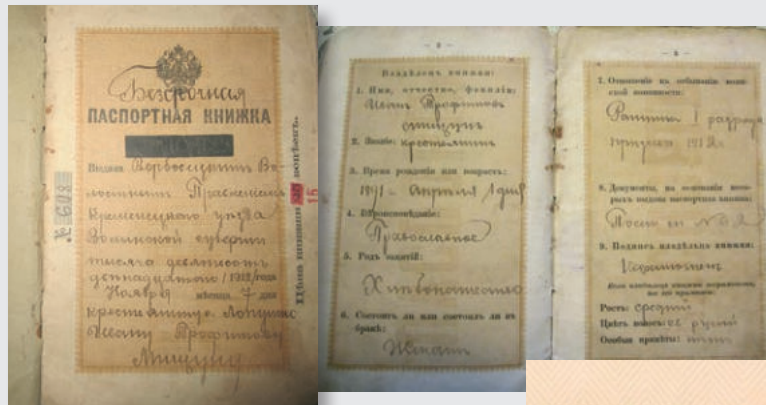 Безсрочная
ПАСПОРТНАЯ КНИЖКА
Выдана
Волостнымъ
Кременецкого уезда
Волынской губернии
тысяча девятьсотъ
двенадцатого /1912/ года
Ноября месяца 7 дня
Ивану Трофимову
Мищуку
№ 608
Цѣна книжки копѣекъ.
15
— 2 —
Владѣлецъ книжки:
1. Имя, отчество, фамилія:
Иванъ Трофимовъ
Мищукъ
2. Званіе: крестьянинъ
3. Время рожденія или возрастъ:
1891 Апреля 1 дня
4. Вѣроисповѣданіе:
Православное
5. Родъ занятій:
Хлебопашество
6. Состоитъ ли или состоялъ ли въ
бракѣ:
Женатъ
— 3 —
7. Отношеніе къ отбыванію воин-
ской повинности:
Ратникъ 1 разряда
1912
8. Документы, на основаніи кото-
рыхъ выдана паспортная книжка:
9. Подпись владѣльца книжки:
Неграмотенъ
Ростъ: средній
Цвѣтъ волосъ: русый
Особыя примѣты: